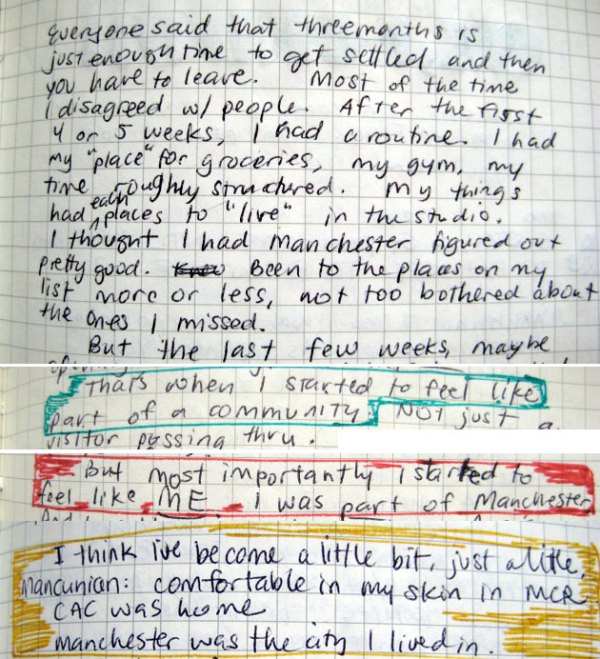 Everyone said that threemonths is
just enough time to get settled and then
you have to leave. Most of the time
I disagreed w/ people. After the first
4 or 5 weeks, I had a routine. I had
my "place" for groceries, my gym, my
time roughly structured. My things
had each places to "live" in the studio.
I thought I had Manchester figured out
pretty good. Knew Been to the places on my
list more or less, not too bothered about
the ones I missed.
But the last few weeks, maybe
That's when I started to feel like
part of a community NOT just a
visitor passing thru.
But most importantly I started to
feel like ME. I was part of Manchester
I think i've become a little bit, just a little,
Mancunian: comfortable in my skin in MCR
CAC was home
Manchester was the city I lived in.